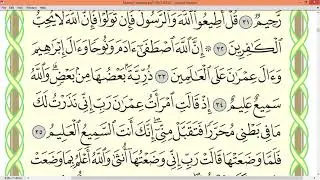 رَّحِيمٌ ٣١ قُلْ أَطِيعُوا۟ ٱللَّهَ وَٱلرَّسُولَ فَإِن تَوَلَّوْا۟ فَإِنَّ ٱللَّهَ لَا يُحِبُّ
ٱلْكَٰفِرِينَ ٣٢ إِنَّ ٱللَّهَ ٱصْطَفَىٰٓ ءَادَمَ وَنُوحًا وَءَالَ إِبْرَٰهِيمَ
وَءَالَ عِمْرَٰنَ عَلَى ٱلْعَٰلَمِينَ ٣٣ ذُرِّيَّةًۢ بَعْضُهَا مِنۢ بَعْضٍ ۗ وَٱللَّهُ
سَمِيعٌ عَلِيمٌ ٣٤ إِذْ قَالَتِ ٱمْرَأَتُ عِمْرَٰنَ رَبِّ إِنِّى نَذَرْتُ لَكَ
مَا فِى بَطْنِى مُحَرَّرًا فَتَقَبَّلْ مِنِّىٓ ۖ إِنَّكَ أَنتَ ٱلسَّمِيعُ ٱلْعَلِيمُ ٣٥
فَلَمَّا وَضَعَتْهَا قَالَتْ رَبِّ إِنِّى وَضَعْتُهَآ أُنثَىٰ وَٱللَّهُ أَعْلَمُ بِمَا وَضَعَتْ